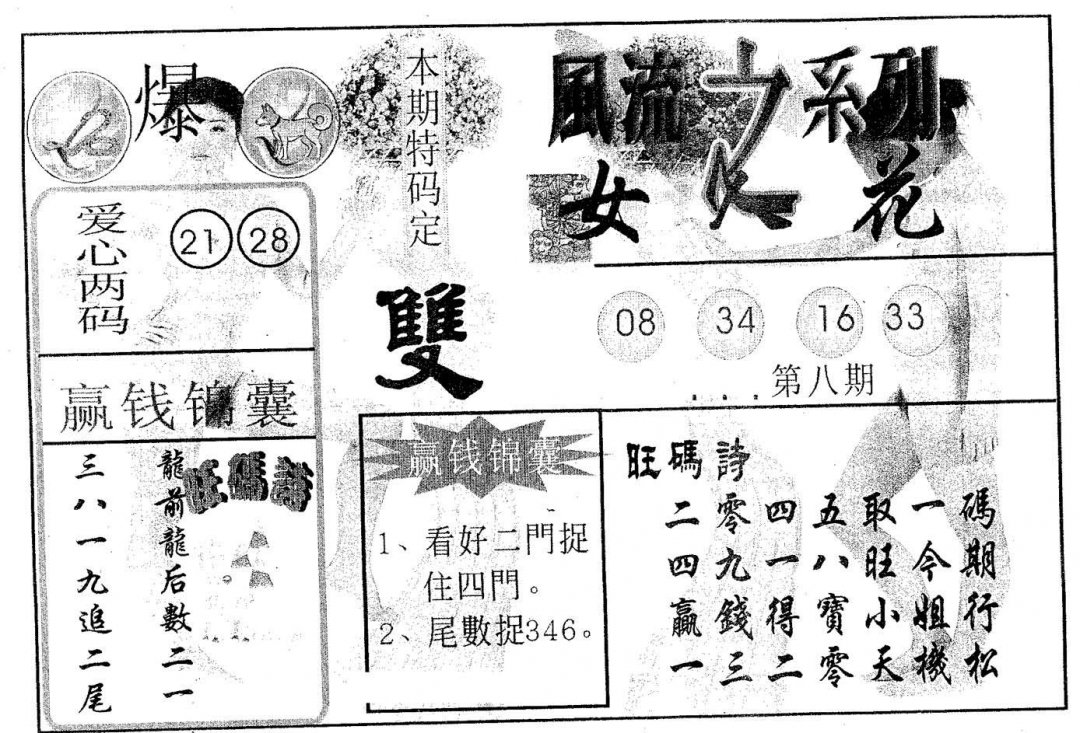 爆
本期特码定
雙
風流之系列
女人花
爱心两码
21 28
08 34 16 33
第八期
赢钱锦囊
龍前龍后數二一
三八一九追二尾
旺碼詩
赢钱锦囊
1、看好二門捉
住四門。
2、尾數捉346。
旺碼詩
二零四五取一碼
四九一八旺今期
贏錢得寶小姐行
一三二零天機松